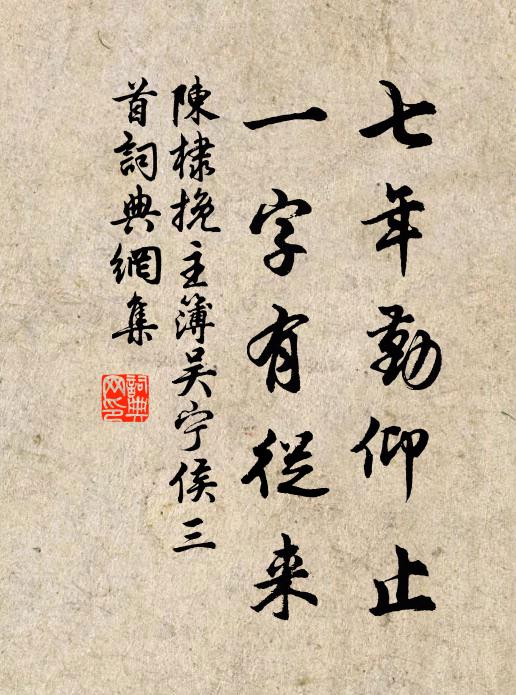 七年勤仰止
一字有從来
陳棣挽主簿吴宁侯三
首詞典網集
詞典
网印